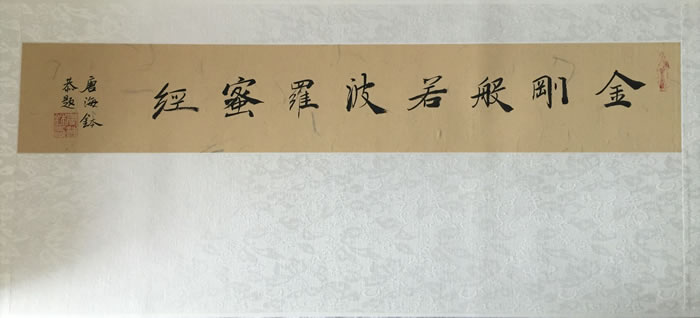 金剛般若波羅蜜經
唐海鈴
恭題